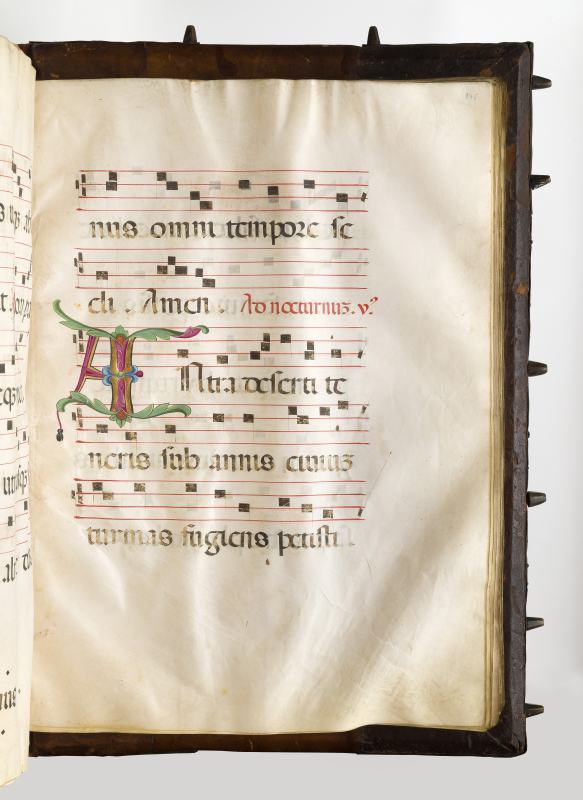 nus omni tempore se
cli Amen. Ad nocturnuz. y.
ANtra deserti te
neris sub annis ciuiuz
turmas fugiens petisti